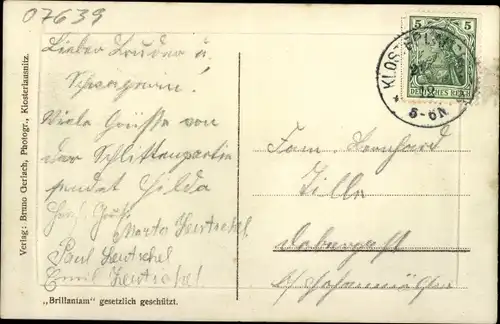 07639
Lieber Bruder u.
Schwägerin!
Viele Grüsse von
der Schlittenpartie
sendet Hilda
Herzl. Gruß Marta Zeutschel
Paul Zeutschel
Emil Zeutschel.
Verlag: Bruno Gerlach, Photogr., Klosterlausnitz.
„Brillantam" gesetzlich geschützt.
5 5
DEUTSCHES REICH
KLOSTER
12
5-6N
Fam. Bernhard
Zilla